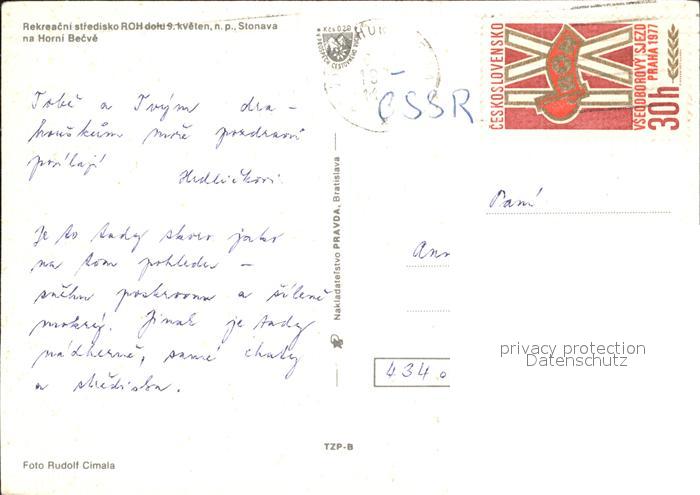 Rekreační středisko ROH dolu 9. květen, n. p., Stonava
na Horní Bečvě
Kčs 0,20
ČSSR
ČESKOSLOVENSKO
VŠEODBOROVÝ SJEZD
PRAHA 1977
30h
Tobě a Tvým dra-
houškům moře pozdravů
posílají
Hedlíčkovi.
Je to tady skoro jako
na tom pohledu –
sněhu poskrovnu a šíleně
mokrý. Jinak je tady
nádherně, samé chaty
a střediska.
Nakladatelství PRAVDA, Bratislava
Paní
Ann
434 0
privacy protection
Datenschutz
TZP-B
Foto Rudolf Cimala